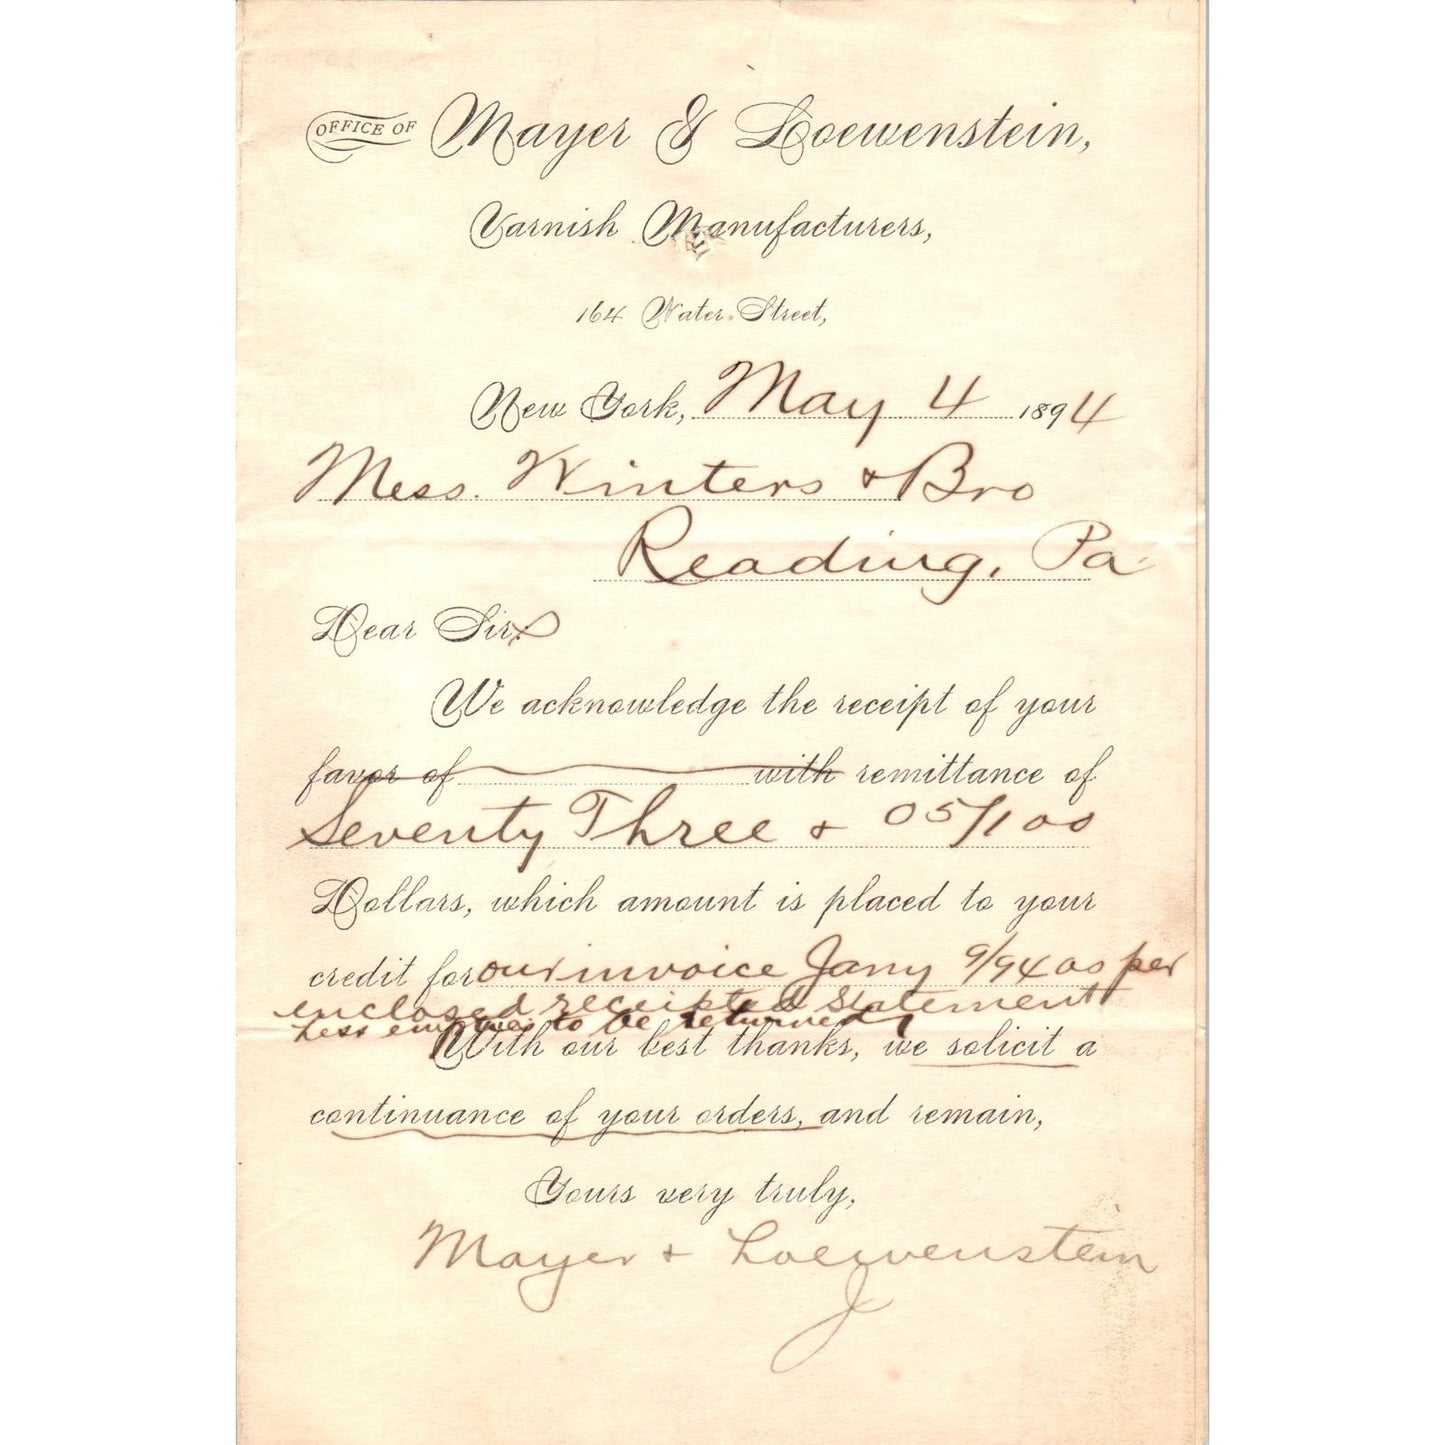 OFFICE OF Mayer & Loewenstein,
Varnish Manufacturers,
164 Water Street,
New York, May 4 1894
Mess. Winters & Bro
Reading, Pa
Dear Sirs
We acknowledge the receipt of your
favor of with remittance of
Seventy Three & 05/100
Dollars, which amount is placed to your
credit for our invoice Jany 9/94 as per
enclosed receipted statement
Less empties to be returned
With our best thanks, we solicit a
continuance of your orders, and remain,
Yours very truly,
Mayer & Loewenstein
J